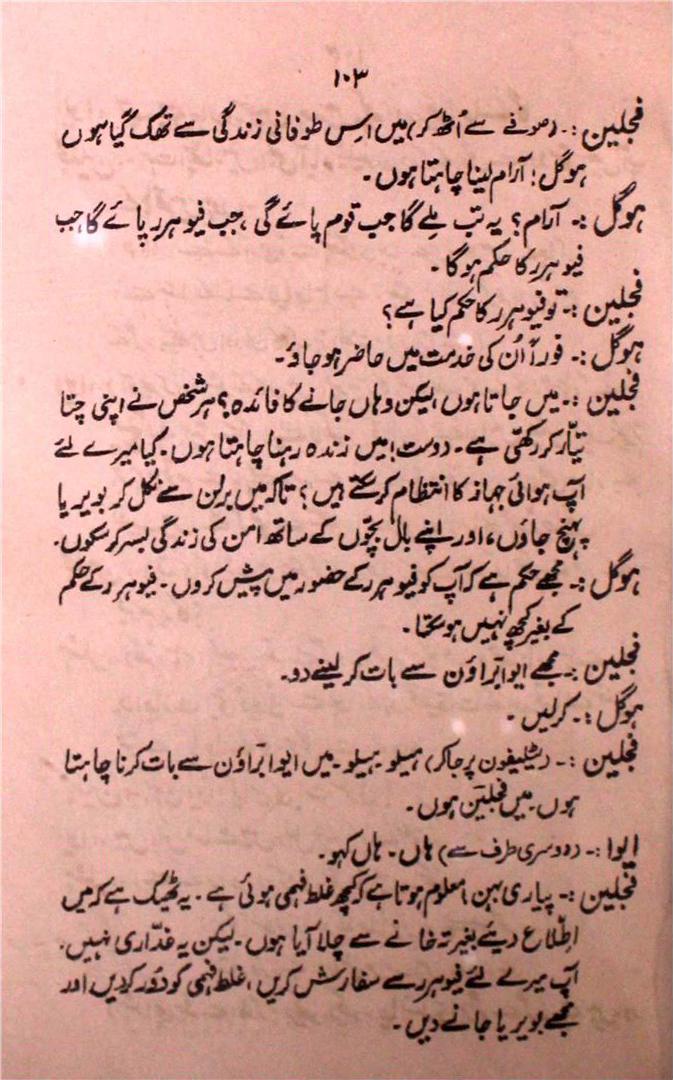 ۱۰۳
فجلین :۔ (صوفے سے اُٹھ کر) میں اِس طوفانی زندگی سے تھک گیا ہوں
ہوگل! آرام لینا چاہتا ہوں۔
ہوگل :۔ آرام؟ یہ تب ملے گا جب قوم پائے گی، جب فیوہرر پائے گا جب
فیوہرر کا حکم ہوگا۔
فجلین :۔ تو فیوہرر کا حکم کیا ہے؟
ہوگل :۔ فوراً اُن کی خدمت میں حاضر ہو جاؤ۔
فجلین :۔ میں جاتا ہوں لیکن وہاں جانے کا فائدہ؟ ہر شخص نے اپنی چتا
تیّار کر رکھّی ہے۔ دوست! میں زندہ رہنا چاہتا ہوں۔ کیا میرے لئے
آپ ہوائی جہاز کا انتظام کر سکتے ہیں؟ تاکہ میں برلن سے نکل کر بویریا
پہنچ جاؤں، اور اپنے بال بچّوں کے ساتھ امن کی زندگی بسر کر سکوں۔
ہوگل :۔ مجھے حکم ہے کہ آپ کو فیوہرر کے حضور میں پیش کروں۔ فیوہرر کے حکم
کے بغیر کچھ نہیں ہو سکتا۔
فجلین :۔ مجھے ایوا براؤن سے بات کر لینے دو۔
ہوگل :۔ کرلیں۔
فجلین :۔ (ٹیلیفون پر جاکر) ہیلو۔ ہیلو۔ میں ایوا براؤن سے بات کرنا چاہتا
ہوں۔ میں فجلین ہوں۔
ایوا :۔ (دوسری طرف سے) ہاں۔ ہاں کہو۔
فجلین :۔ پیاری بہن! معلوم ہوتا ہے کہ کچھ غلط فہمی ہوئی ہے۔ یہ ٹھیک ہے کہ میں
اطّلاع دیئے بغیر تہ خانے سے چلا آیا ہوں۔ لیکن یہ غدّاری نہیں۔
آپ میرے لئے فیوہرر سے سفارش کریں، غلط فہمی کو دُور کردیں اور
مجھے بویریا جانے دیں۔